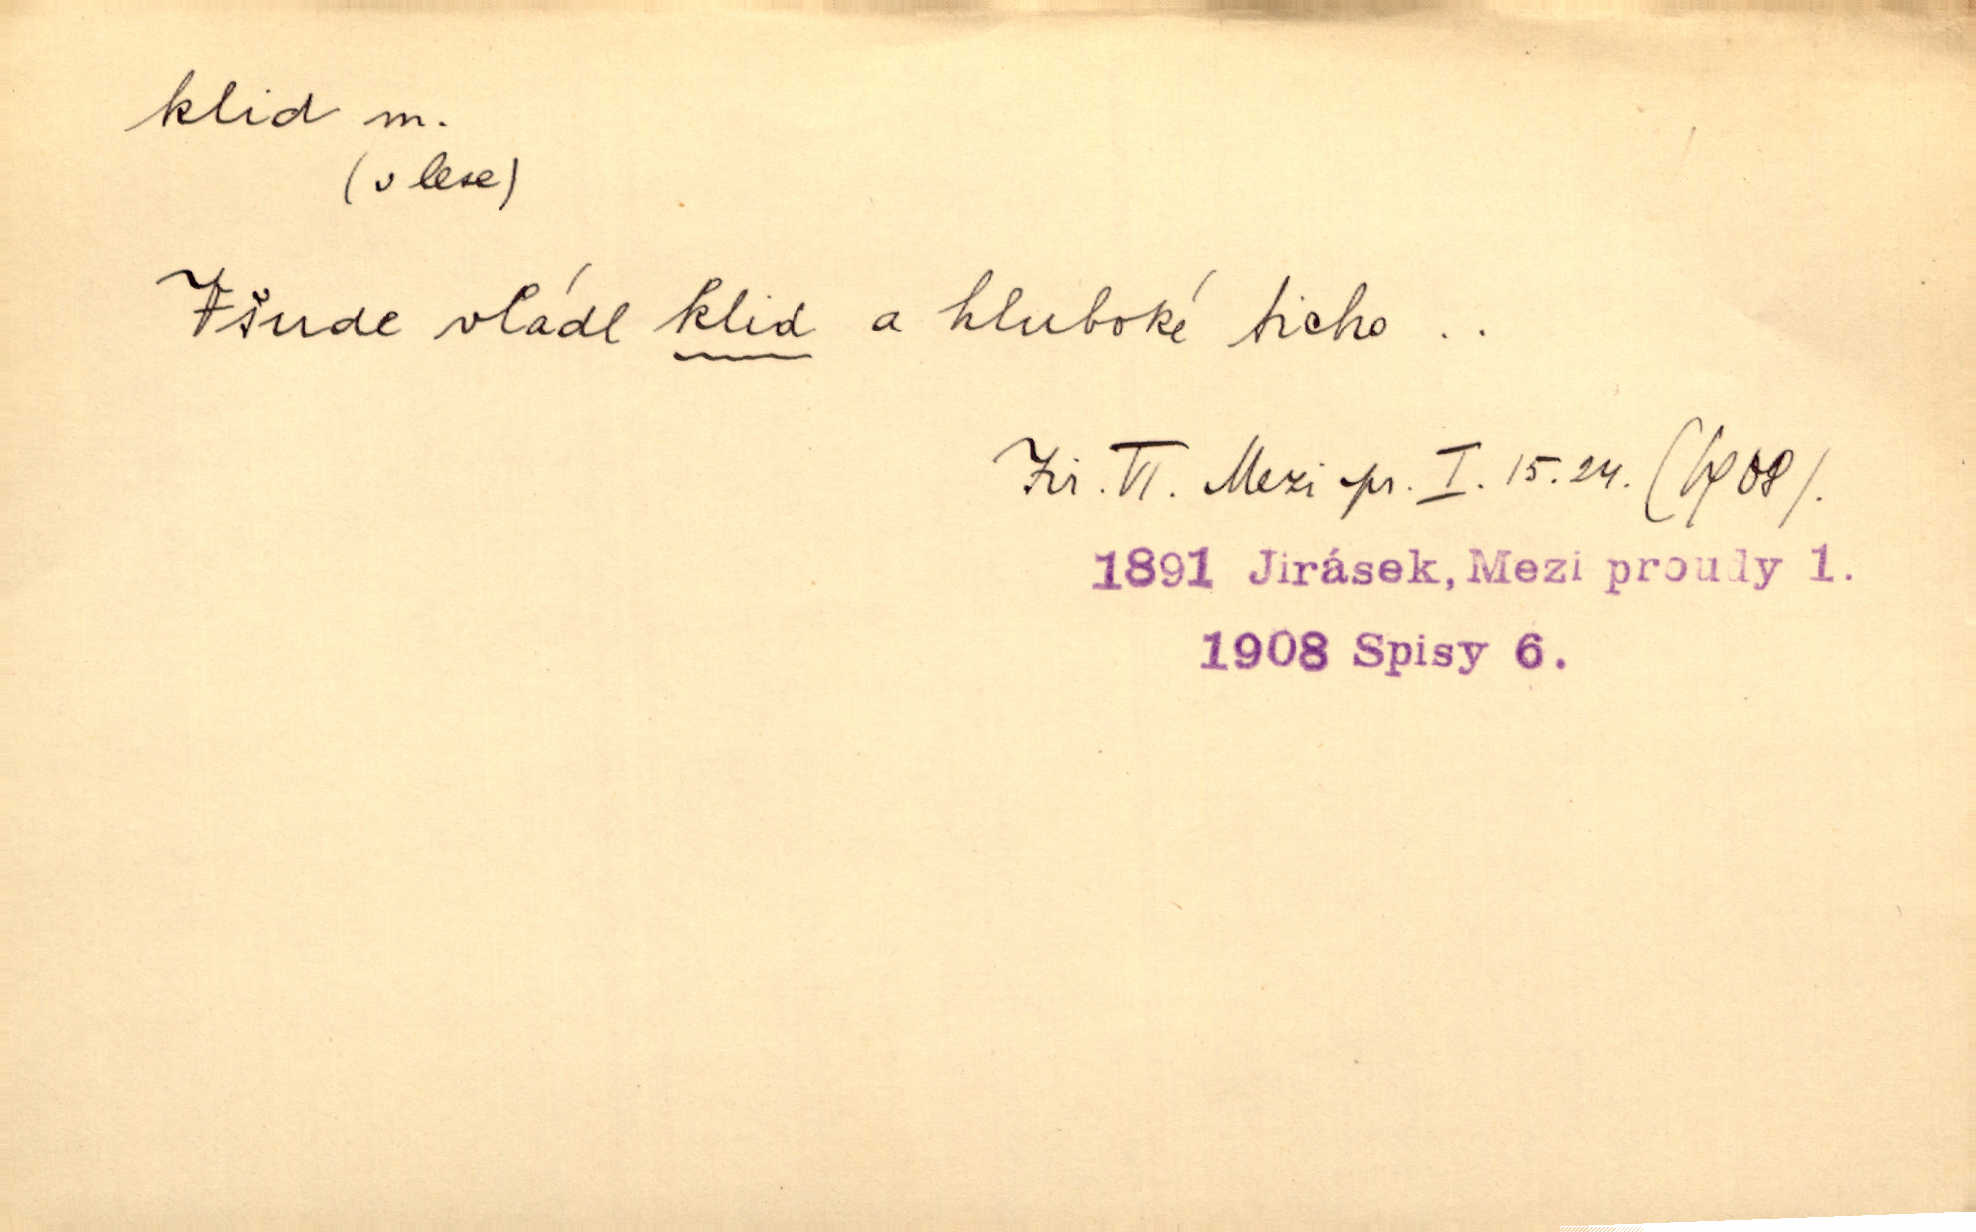 klid m.
(v lese)
Všude vládl klid a hluboké ticho ..
Jir. VI. Mezi pr. I. 15.24. (1908).
1891 Jirásek, Mezi proudy 1.
1908 Spisy 6.